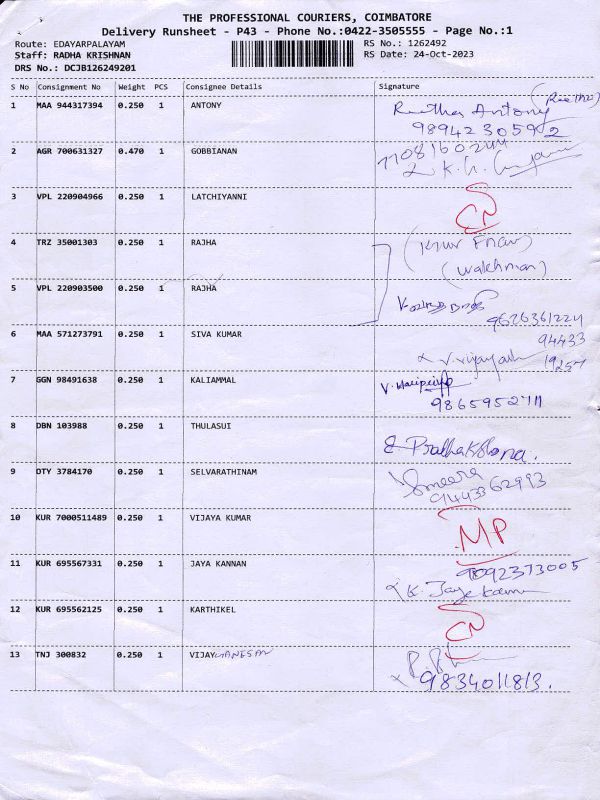 THE PROFESSIONAL COURIERS, COIMBATORE
Delivery Runsheet - P43 - Phone No.:0422-3505555 - Page No.:1
Route: EDAYARPALAYAM RS No.: 1262492
Staff: RADHA KRISHNAN RS Date: 24-Oct-2023
DRS No.: DCJB126249201
S No Consignment No Weight PCS Consignee Details Signature
1 MAA 944317394 0.250 1 ANTONY Antony
9894230592
2 AGR 700631327 0.470 1 GOBBIANAN
3 VPL 220904966 0.250 1 LATCHIYANNI
CN
4 TRZ 35001303 0.250 1 RAJHA
(Watchman)
5 VPL 220903500 0.250 1 RAJHA
9626361224
6 MAA 571273791 0.250 1 SIVA KUMAR 94433
19257
7 GGN 98491638 0.250 1 KALIAMMAL
9865952711
8 DBN 103988 0.250 1 THULASUI
9 OTY 3784170 0.250 1 SELVARATHINAM
9443362993
10 KUR 7000511489 0.250 1 VIJAYA KUMAR
MP
11 KUR 695567331 0.250 1 JAYA KANNAN 9092373005
12 KUR 695562125 0.250 1 KARTHIKEL
CN
13 TNJ 300832 0.250 1 VIJAYGANESAN
9834011813.